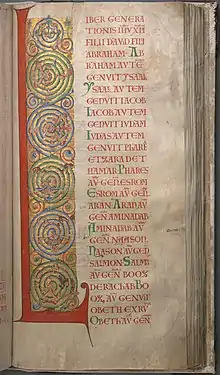 LIBER GENERA
TIONIS IHV XPI
FILII DAVID FILII
ABRAHAM AB
RAHĀ AVTĒ
GENVIT YSAAC
YSAAC AVTEM
GENVIT IACOB
IACOB AVTEM
GENVIT IVDAM
IVDAS AVTEM
GENVIT PHARE
ET ZARA DE T
HAMAR PHARES
AV GEN ESROM
ESROM AV GEN
ARAN ARAN AV
GEN AMINADAB
AMINADAB AV
GEN NAASON
NAASON AV GEN
SALMON SALM
AV GEN BOOZ
DE RACHAB BO
OZ AV GENVIT
OBETH EX RV
OBETH AV GEN